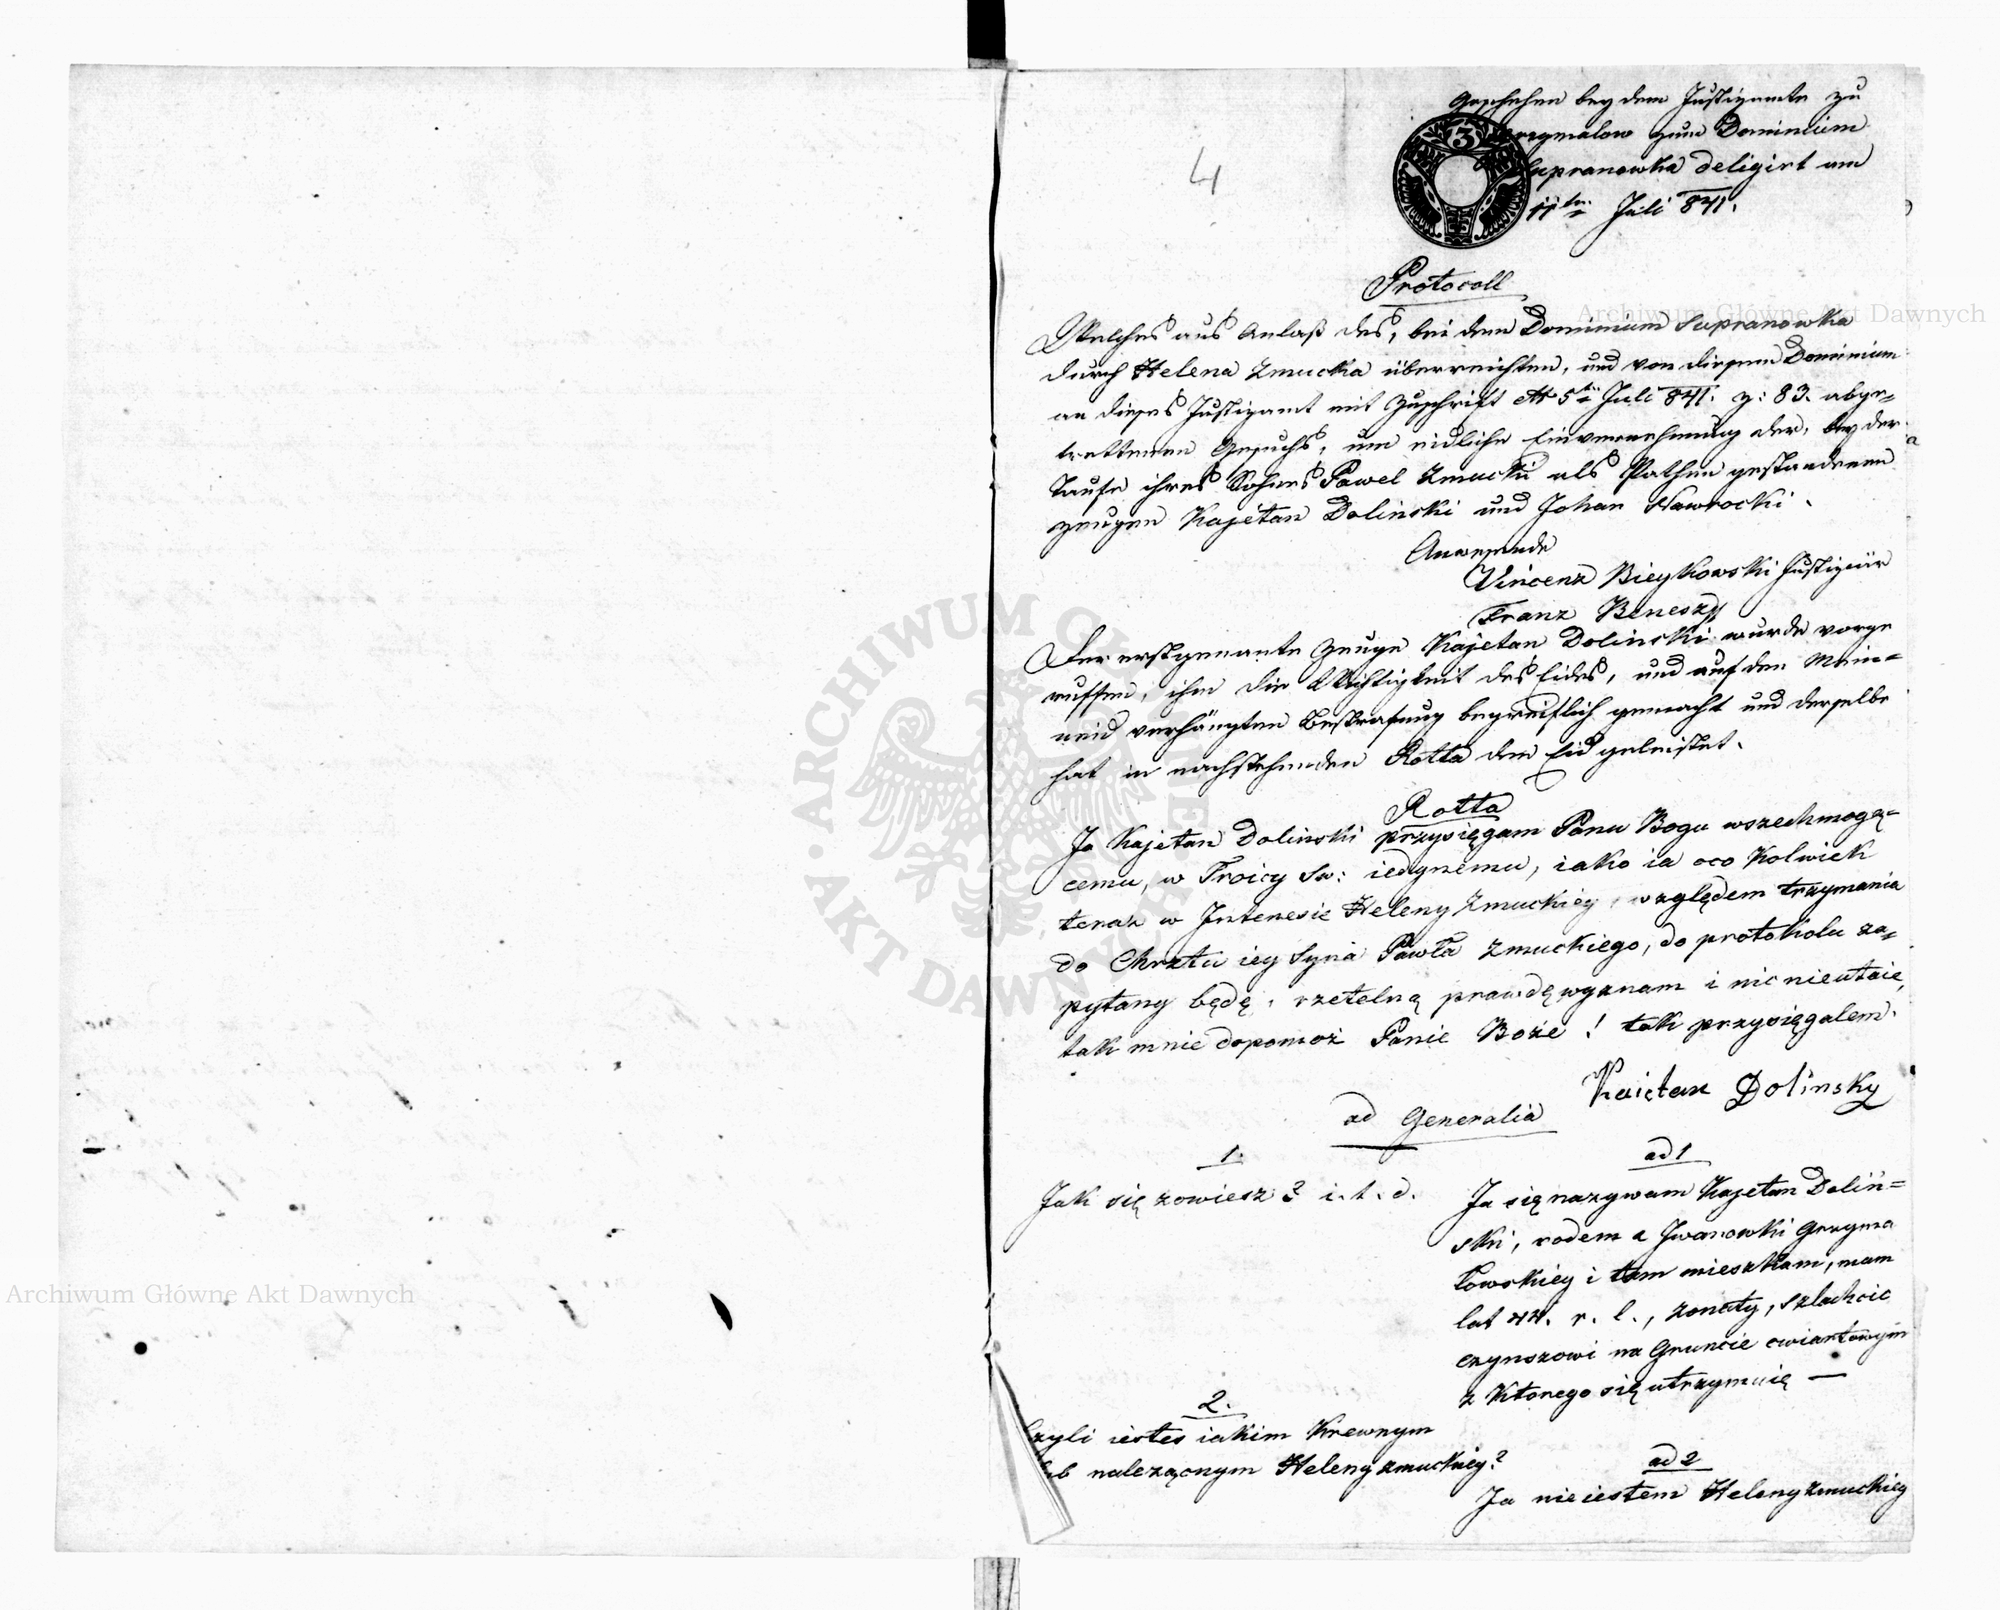 4
Geschehen bey dem Justizamte zu
Grzymalow zum Dominium
Supranowka deligirt am
11ten Juli 841.
Protocoll
Welches aus Anlaß des, bei dem Dominium Supranowka
durch Helena Zmucka überreichten, und von diesem Dominium
an dieses Justizamt mit Zuschrift 5ten Juli 841. z: 83. abge=
trettenen Gesuchs, um eidliche Einvernehmung der, bey der
Taufe ihres Sohnes Pawel Zmucki als Pathen gestandenen
Zeugen Kajetan Dolinski und Johan Nawrocki.
Anwesende
Vincenz Bieykowski Justiziär
Franz Beneszy
Der erstgenante Zeuge Kajetan Dolinski wurde vorge
ruffen, ihm die Wichtigkeit des Eides, und auf den Mein=
eid verhängten Bestrafung begreiflich gemacht und derselbe
hat in nachstehenden Rotta den Eid geleistet.
Rotta
Ja Kajetan Dolinski przysięgam Panu Bogu wszechmogą=
cemu, w Troicy Sw: iedynemu, iako ia oco kolwiek
teraz w Interesie Heleny Zmuckiey, względem trzymania
do Chrztu iey Syna Pawła Zmuckiego, do protokolu za=
pytany będę, rzetelną prawdę wyznam i nic nieutaie,
tak mnie dopomoż Panie Boże! tak przysięgalem.
Kaietan Dolinsky
ad Generalia
1.
Jak się zowiesz? i. t. d.
ad 1
Ja się nazywam Kajetan Doliń=
ski, rodem z Iwanowki Grzyma
łowskiey i tam mieszkam, mam
lat 44. r. l., żonaty, szlachcic
czynszowi na Gruncie cwiartowym
z Ktorego się utrzymuię —
2.
Czyli iestes iakim Krewnym
lub należącym Heleny Zmuckiey?
ad 2
Ja nie iestem Heleny Zmuckiey
Archiwum Główne Akt Dawnych
Archiwum Główne Akt Dawnych
ARCHIWUM GŁÓWNE AKT DAWNYCH